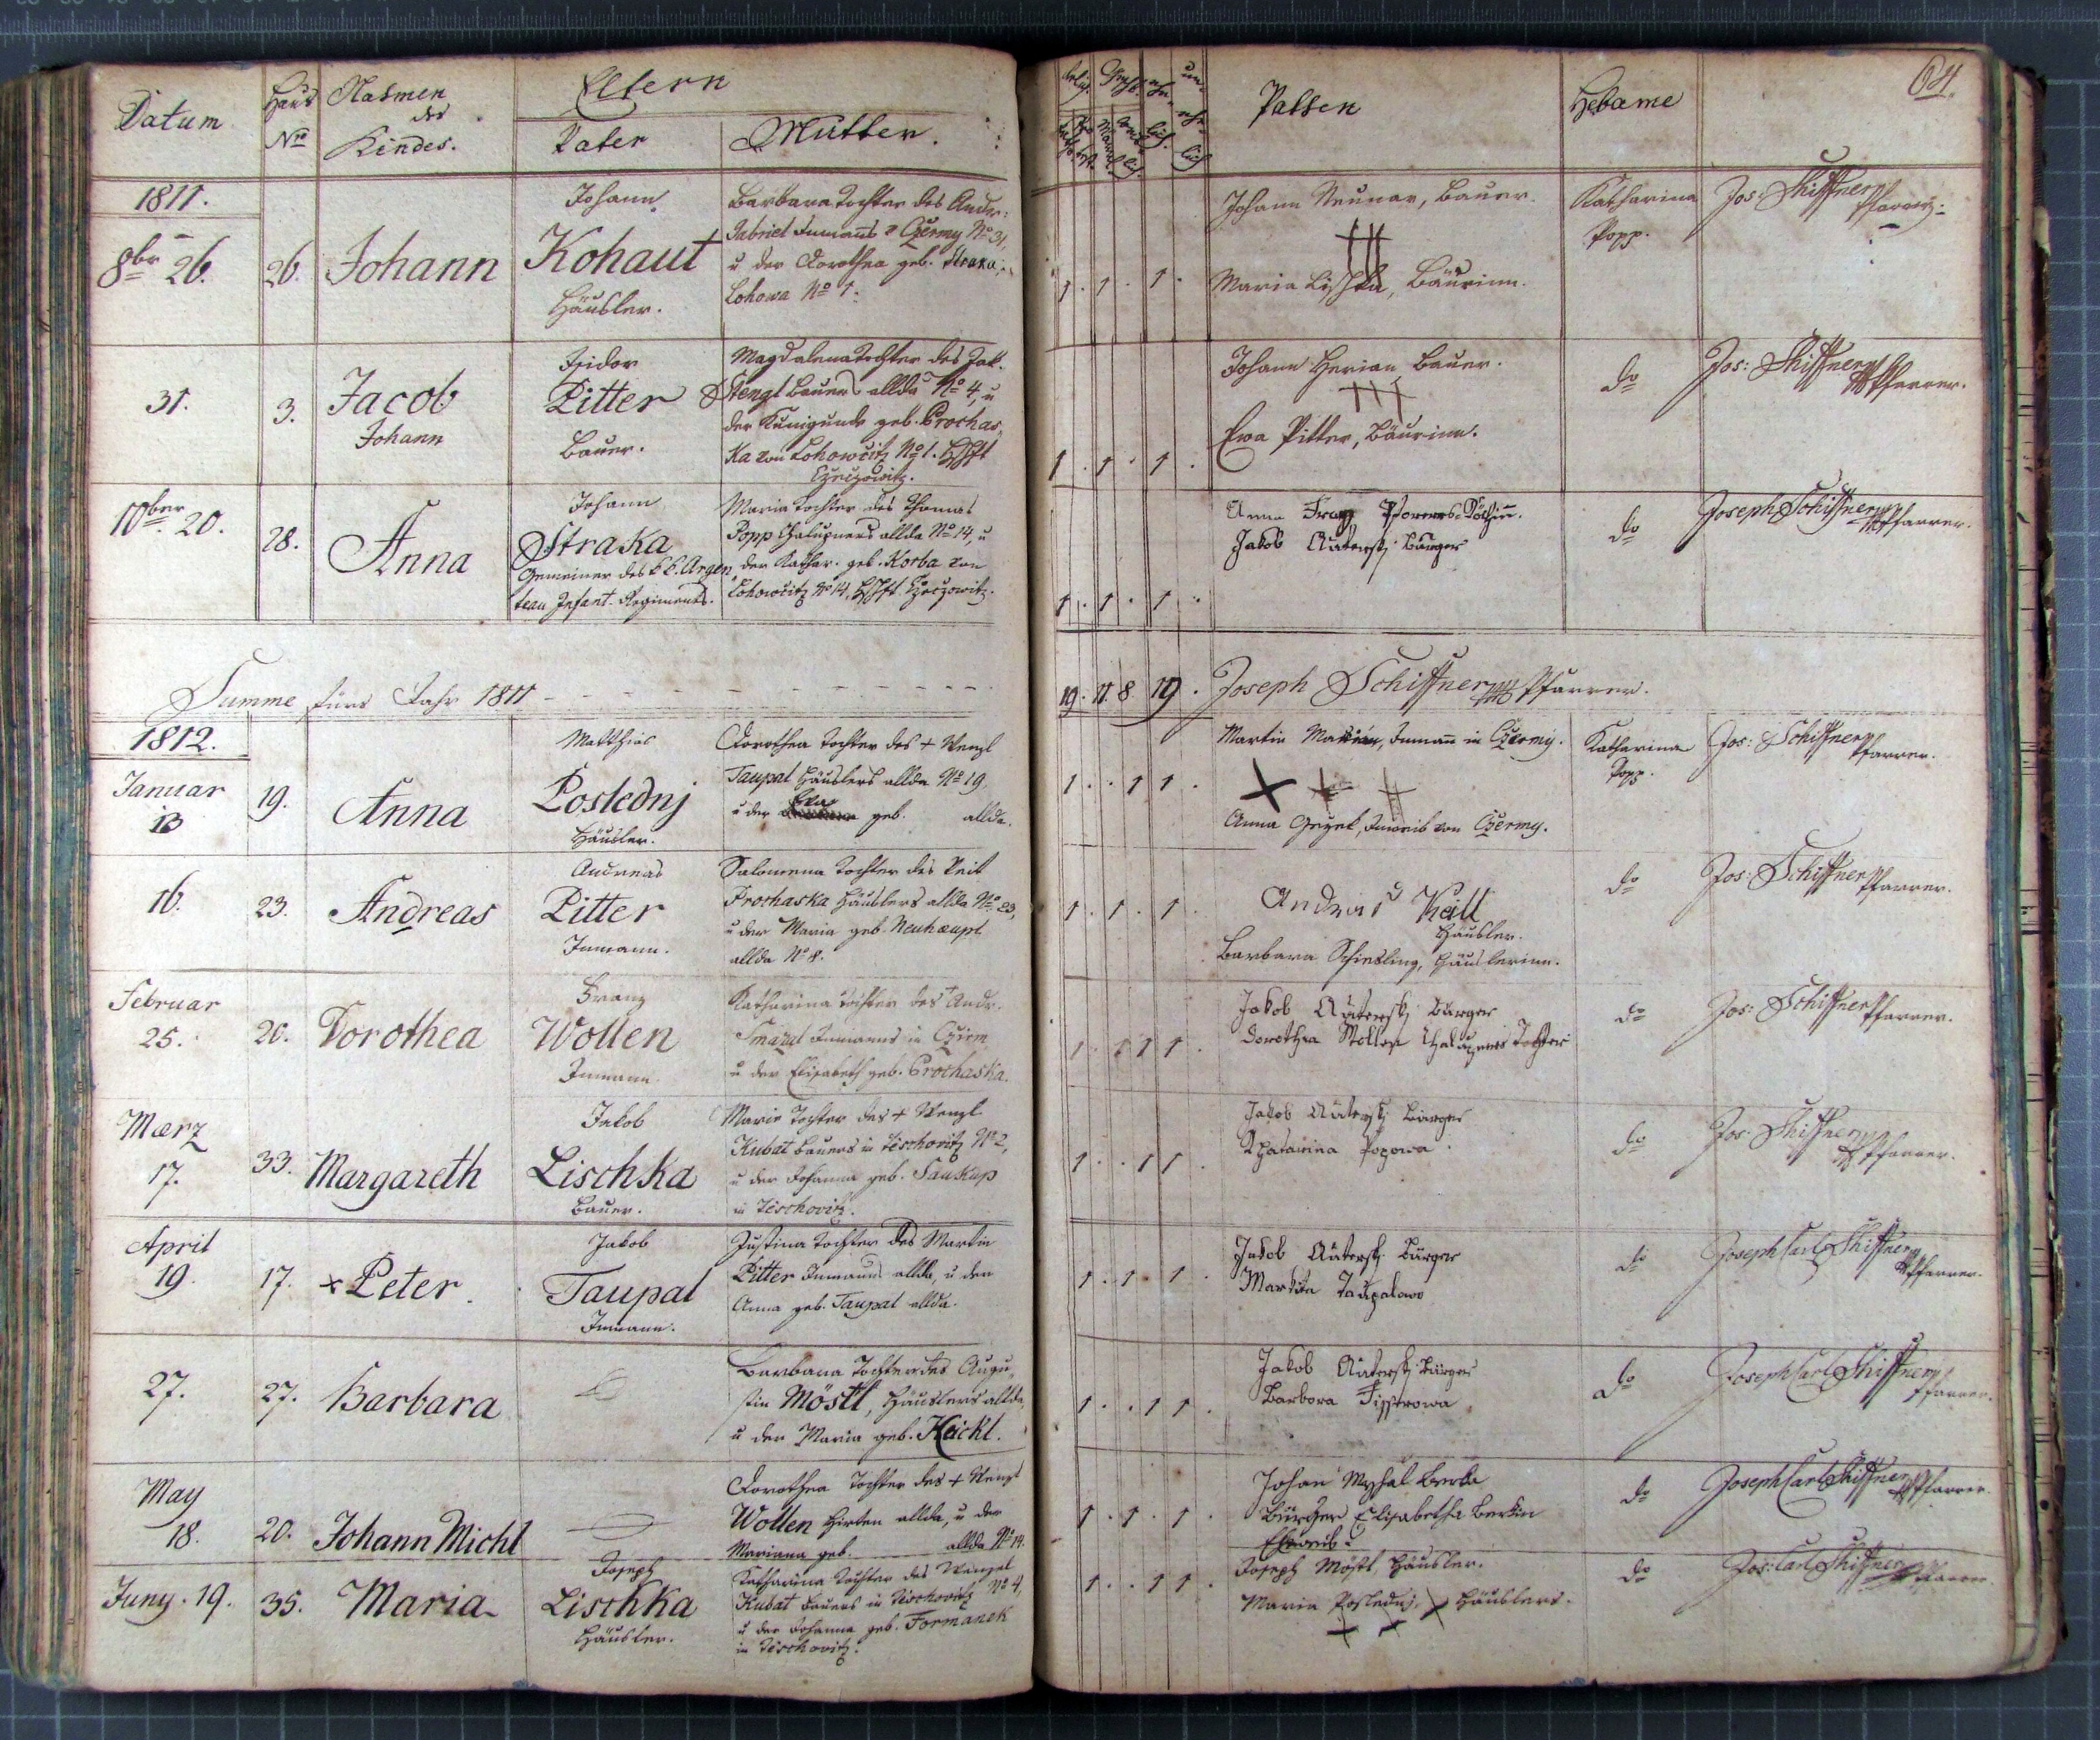 Datum
Haus
Nro
Nahmen
des
Kindes.
Eltern
Vater
Mutter.
Pathen
Hebame
64.
1811.
8br 26.
26.
Johann
Johann
Kohaut
Häusler.
Barbara Tochter des Andr:
Gabriel Inmanns v Czermy No 31,
u der Dorothea geb. Straka,
Lohowa No 1.
1. 1. 1.
Johann Neunar, Bauer.
Maria Lischka, Bäurinn.
Katharina
Popp.
Jos: Schiffner
Pfarrer
31.
3.
Jacob
Johann
Isidor
Pitter
Bauer.
Magdalena Tochter des Jak.
Stengl Bauers allda No 4, u
der Kunigunde geb. Prochas
ka von Lohowcitz No 1. Hschft
1. 1. 1.
Johann Herian Bauer.
Ewa Pitter, Bäurinn.
do
Jos: Schiffner
Pfarrer.
10ber 20.
28.
Anna
Johann
Straka
Gemeiner des k k. Argen
teau Infant. Regiments.
Maria Tochter des Thomas
Popp Chalupners allda No 14, u
der Kathar. geb. Korba von
Lohowcitz No 14, Hschft
1. 1. 1.
Anna
Jakob Bürger
do
Joseph Schiffner
Pfarrer.
Summe fürs Jahr 1811
19. 11. 8 19.
Joseph Schiffner Pfarrer.
1812.
Januar
13
19.
Anna
Matthias
Poslednj
Häusler.
Dorothea Tochter des + Wenzl
Taupal Häuslers allda No 19
u der Eva geb. allda.
1. . 1 1 .
Martin Inmann in Czermy.
Anna Inweib von Czermy.
Katharina
Popp.
Jos: Schiffner
Pfarrer.
16.
23.
Andreas
Andreas
Pitter
Inmann.
Salomena Tochter des Veit
Prochaska Häuslers allda No 23,
u der Maria geb. Neuhaupt
allda No 8.
1. 1. 1.
Andreas
Häusler.
Barbara Schiesling, Häuslerinn.
do
Jos: Schiffner
Pfarrer.
Februar
25.
20.
Dorothea
Franz
Wollen
Inmann
Katharina Tochter des + Andr.
Smazal Inmanns in Czerm
u der Elisabeth geb. Prochaska.
1 . 1 1 .
Jakob Bürger
Dorothea Tochter
do
Jos: Schiffner
Pfarrer.
Mærz
17.
33.
Margareth
Jakob
Lischka
Bauer.
Marie Tochter des + Wenzl
Kubat Bauers in Tischowitz No 2,
u der Johanna geb. Saukup
in Tischowitz.
1 . . 1 1 .
Jakob Bürger
Popowa
do
Jos: Schiffner
Pfarrer.
April
19.
17.
x Peter.
Jakob
Taupal
Inmann.
Justina Tochter des Martin
Pitter Inmanns allda, u der
Anna geb. Taupal allda.
1 . 1 . 1 .
Jakob Bürger
Taupalowa
do
Joseph Carl Schiffner
Pfarrer.
27.
27.
Barbara
Barbara Tochter des Augu
stin Möstl, Häuslers allda,
u der Maria geb. Hackl.
1 . . 1 1 .
Jakob Bürger
Barbora Fisstrowa
do
Joseph Carl Schiffner
Pfarrer.
May
18.
20.
Johann Michl
Dorothea Tochter des + Wenzl
Wollen Hirten allda, u der
Mariana geb. allda No 14.
1 . 1 . 1 .
Johan Berka
Bürger Elisabetha Berkin
Eheweib
do
Joseph Carl Schiffner
Pfarrer.
Juny. 19.
35.
Maria
Joseph
Lischka
Häusler.
Katharina Tochter des Wenzel
Kubat Bauers in Tischowitz No 4,
u der Johanna geb. Formanek
in Tischowitz.
1 . . 1 1 .
Joseph Möstl, Häusler.
Maria Poslednj, Häuslers.
do
Jos: Carl Schiffner
Pfarrer